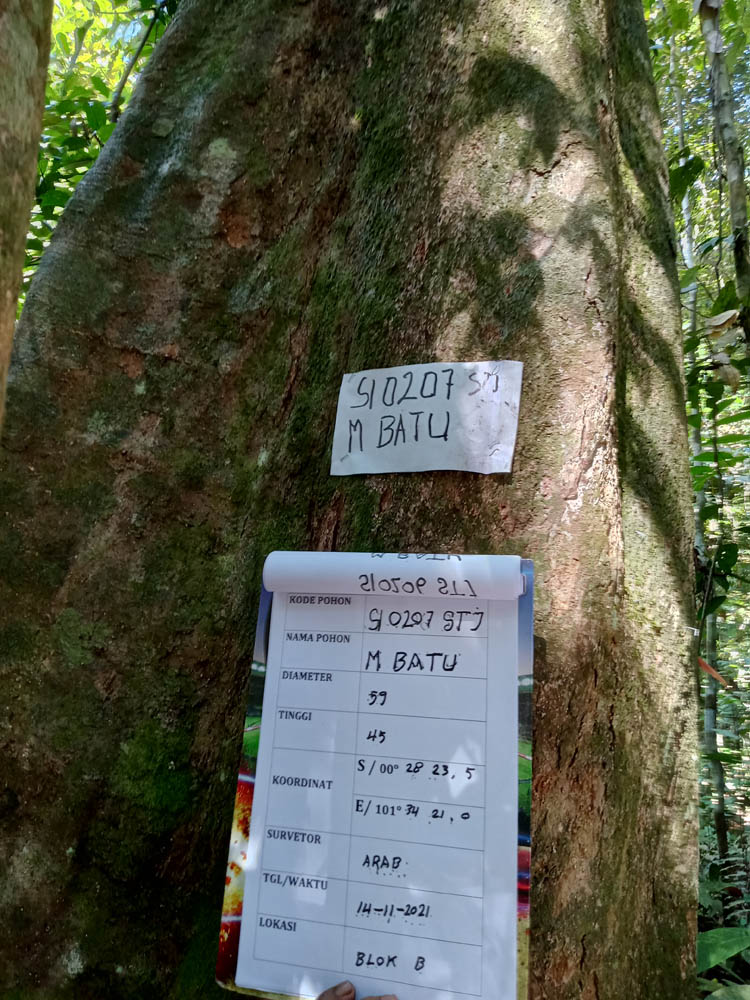 SI0207 STJ
M BATU
SI0206 STJ
KODE POHON SI0207 STJ
NAMA POHON M BATU
DIAMETER 59
TINGGI 45
KOORDINAT S / 00° 28 23, 5
E/ 101° 34 21, 0
SURVETOR ARAB
TGL/WAKTU 14-11-2021
LOKASI BLOK B